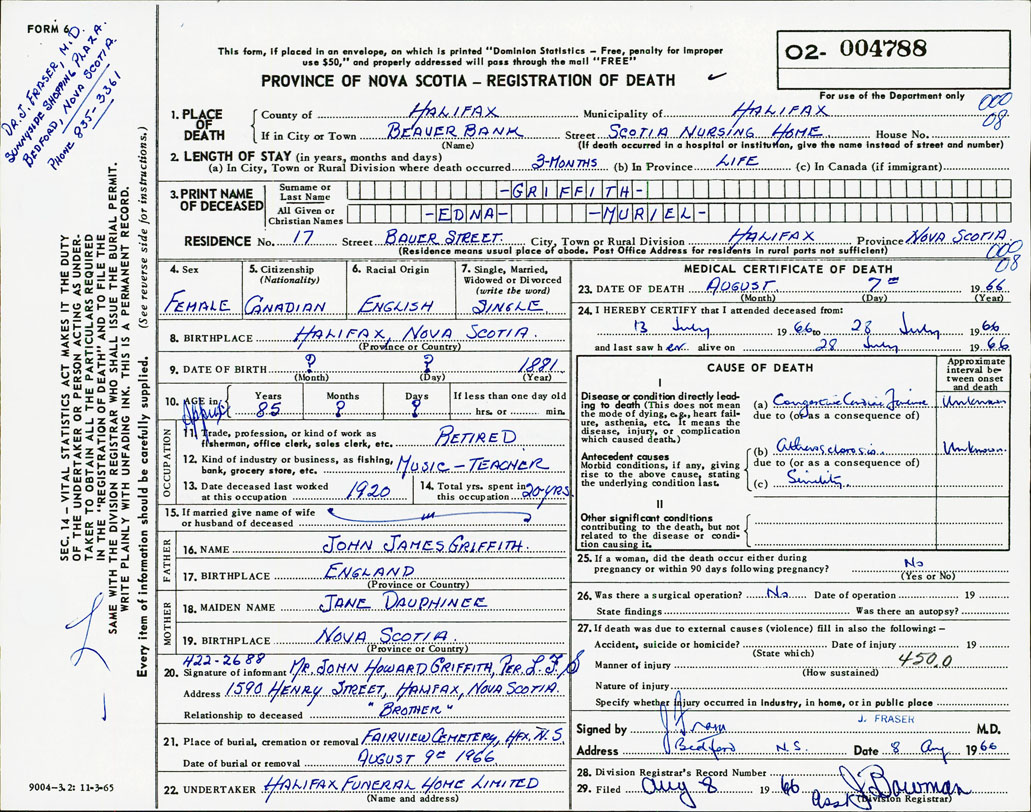 FORM 6
DR. J. FRASER, M.D.
SUNNYSIDE SHOPPING PLAZA.
BEDFORD, NOVA SCOTIA.
PHONE 835-3361
This form, if placed in an envelope, on which is printed "Dominion Statistics – Free, penalty for improper
use $50," and properly addressed will pass through the mail "FREE"
PROVINCE OF NOVA SCOTIA – REGISTRATION OF DEATH
O2- 004788
For use of the Department only
000
08
1. PLACE OF DEATH County of HALIFAX Municipality of HALIFAX
If in City or Town BEAVER BANK Street SCOTIA NURSING HOME House No.
(Name) (If death occurred in a hospital or institution, give the name instead of street and number)
2. LENGTH OF STAY (in years, months and days)
(a) In City, Town or Rural Division where death occurred 3-MONTHS (b) In Province LIFE (c) In Canada (if immigrant)
3. PRINT NAME OF DECEASED Surname or Last Name -GRIFFITH-
All Given or Christian Names -EDNA- -MURIEL-
RESIDENCE No. 17 Street BAUER STREET. City, Town or Rural Division HALIFAX Province NOVA SCOTIA.
(Residence means usual place of abode. Post Office Address for residents in rural parts not sufficient)
000
08
SEC. 14 – VITAL STATISTICS ACT MAKES IT THE DUTY
OF THE UNDERTAKER OR PERSON ACTING AS UNDER-
TAKER TO OBTAIN ALL THE PARTICULARS REQUIRED
IN THE "REGISTRATION OF DEATH" AND TO FILE THE
SAME WITH THE DIVISION REGISTRAR WHO SHALL ISSUE THE BURIAL PERMIT.
WRITE PLAINLY WITH UNFADING INK. THIS IS A PERMANENT RECORD.
Every item of information should be carefully supplied. (See reverse side for instructions.)
4. Sex FEMALE
5. Citizenship (Nationality) CANADIAN
6. Racial Origin ENGLISH
7. Single, Married, Widowed or Divorced (write the word) SINGLE
8. BIRTHPLACE HALIFAX, NOVA SCOTIA.
(Province or Country)
9. DATE OF BIRTH ? ? 1881
(Month) (Day) (Year)
10. AGE in Approx Years 85 Months ? Days ? If less than one day old
hrs. or min.
OCCUPATION
11. Trade, profession, or kind of work as
fisherman, office clerk, sales clerk, etc. RETIRED
12. Kind of industry or business, as fishing,
bank, grocery store, etc. MUSIC – TEACHER
13. Date deceased last worked
at this occupation 1920
14. Total yrs. spent in
this occupation 20 YRS.
15. If married give name of wife
or husband of deceased
FATHER
16. NAME JOHN JAMES GRIFFITH.
17. BIRTHPLACE ENGLAND
(Province or Country)
MOTHER
18. MAIDEN NAME JANE DAUPHINEE
19. BIRTHPLACE NOVA SCOTIA.
(Province or Country)
422-2688
20. Signature of informant MR. JOHN HOWARD GRIFFITH, PER. L.F.S
Address 1590 HENRY STREET, HALIFAX, NOVA SCOTIA.
Relationship to deceased "BROTHER"
21. Place of burial, cremation or removal FAIRVIEW CEMETERY, HFX. N.S.
Date of burial or removal AUGUST 9th 1966
22. UNDERTAKER HALIFAX FUNERAL HOME LIMITED
(Name and address)
9004-3.2: 11-3-65
MEDICAL CERTIFICATE OF DEATH
23. DATE OF DEATH AUGUST 7th 1966
(Month) (Day) (Year)
24. I HEREBY CERTIFY that I attended deceased from:
13 July 1966 to 28 July 1966
and last saw her alive on 28 July 1966.
CAUSE OF DEATH
Approximate interval between onset and death
I
Disease or condition directly lead-
ing to death (This does not mean
the mode of dying, e.g., heart failure,
asthenia, etc. It means the
disease, injury, or complication
which caused death.)
(a) Congestive Cardiac Failure Unknown
due to (or as a consequence of)
Antecedent causes
Morbid conditions, if any, giving
rise to the above cause, stating
the underlying condition last.
(b) Atherosclerosis Unknown.
due to (or as a consequence of)
(c) Senility
II
Other significant conditions
contributing to the death, but not
related to the disease or condi-
tion causing it.
25. If a woman, did the death occur either during
pregnancy or within 90 days following pregnancy? No
(Yes or No)
26. Was there a surgical operation? No. Date of operation 19
State findings Was there an autopsy?
27. If death was due to external causes (violence) fill in also the following: –
Accident, suicide or homicide? Date of injury 19
(State which)
Manner of injury 450.0
(How sustained)
Nature of injury
Specify whether injury occurred in Industry, in home, or in public place
Signed by J Fraser J. FRASER M.D.
Address Bedford N.S. Date 8 Aug 1966
28. Division Registrar's Record Number
29. Filed Aug 8 1966 Asst J Bowman
(Division Registrar)